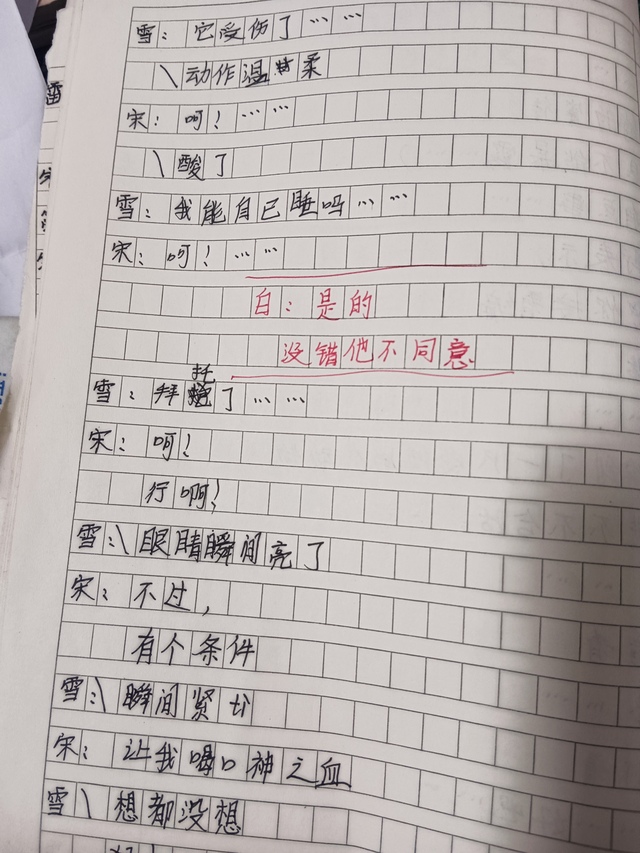 雪：它受伤了……
\动作温柔
宋：呵！……
\酸了
雪：我能自己睡吗……
宋：呵！……
白：是的
没错他不同意
雪：拜托了……
宋：呵！
行啊！
雪：\眼睛瞬间亮了
宋：不过，
有个条件
雪：\瞬间紧
宋：让我喝口神之血
雪\想都没想